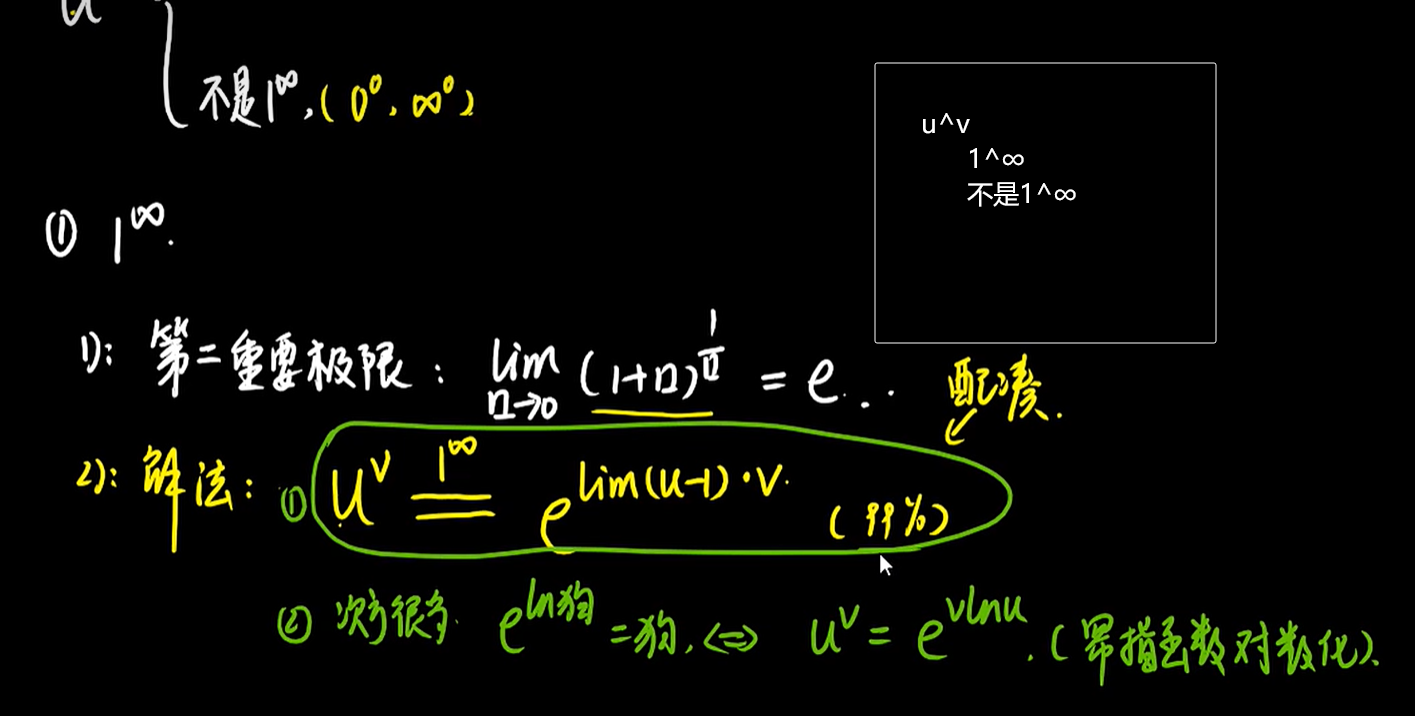 u
不是1^∞,(0^0, ∞^0)
u^v
1^∞
不是1^∞
① 1^∞.
1): 第二重要极限: lim_{□→0} (1+□)^{1/□} = e...
配凑.
2): 解法: ① u^v =(1^∞)= e^{lim(u-1)·v}. (99%)
② 次方很多. e^{ln狗} =狗, <=> u^v = e^{vlnu}. (幂指函数对数化).